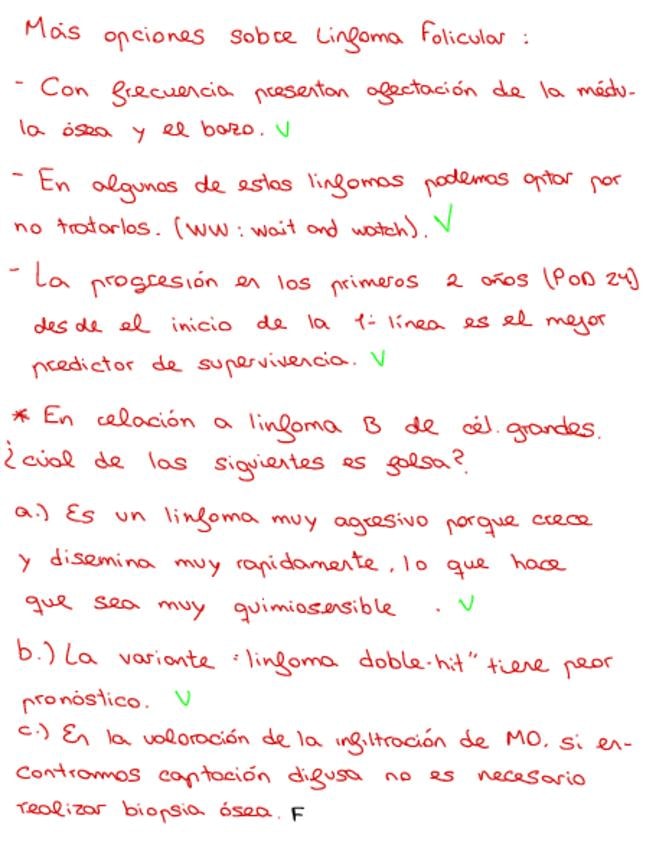 Más opciones sobre Linfoma Folicular :
- Con frecuencia presentan afectación de la médu-
la ósea y el bazo. V
- En algunos de estos linfomas podemos optar por
no tratarlos. (WW : wait and watch). V
- La progresión en los primeros 2 años (POD 24)
desde el inicio de la 1ª línea es el mejor
predictor de supervivencia. V
* En relación a linfoma B de cél. grandes.
¿cúal de las siguientes es falsa?
a.) Es un linfoma muy agresivo porque crece
y disemina muy rapidamente, lo que hace
que sea muy quimiosensible . V
b.) La variante "linfoma doble-hit" tiene peor
pronóstico. V
c.) En la valoración de la infiltración de MO, si en-
contramos captación difusa no es necesario
realizar biopsia ósea. F